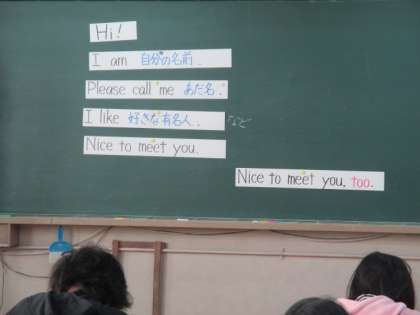 Hi!
I am 自分の名前.
Please call me あだ名.
I like 好きな有名人. など
Nice to meet you.
Nice to meet you, too.